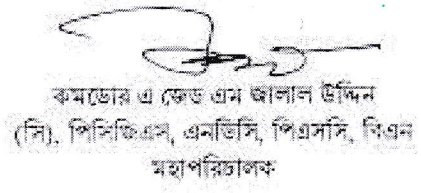 কমডোর এ জেড এম জালাল উদ্দিন
(সি), পিসিজিএস, এনডিসি, পিএসসি, বিএন
মহাপরিচালক